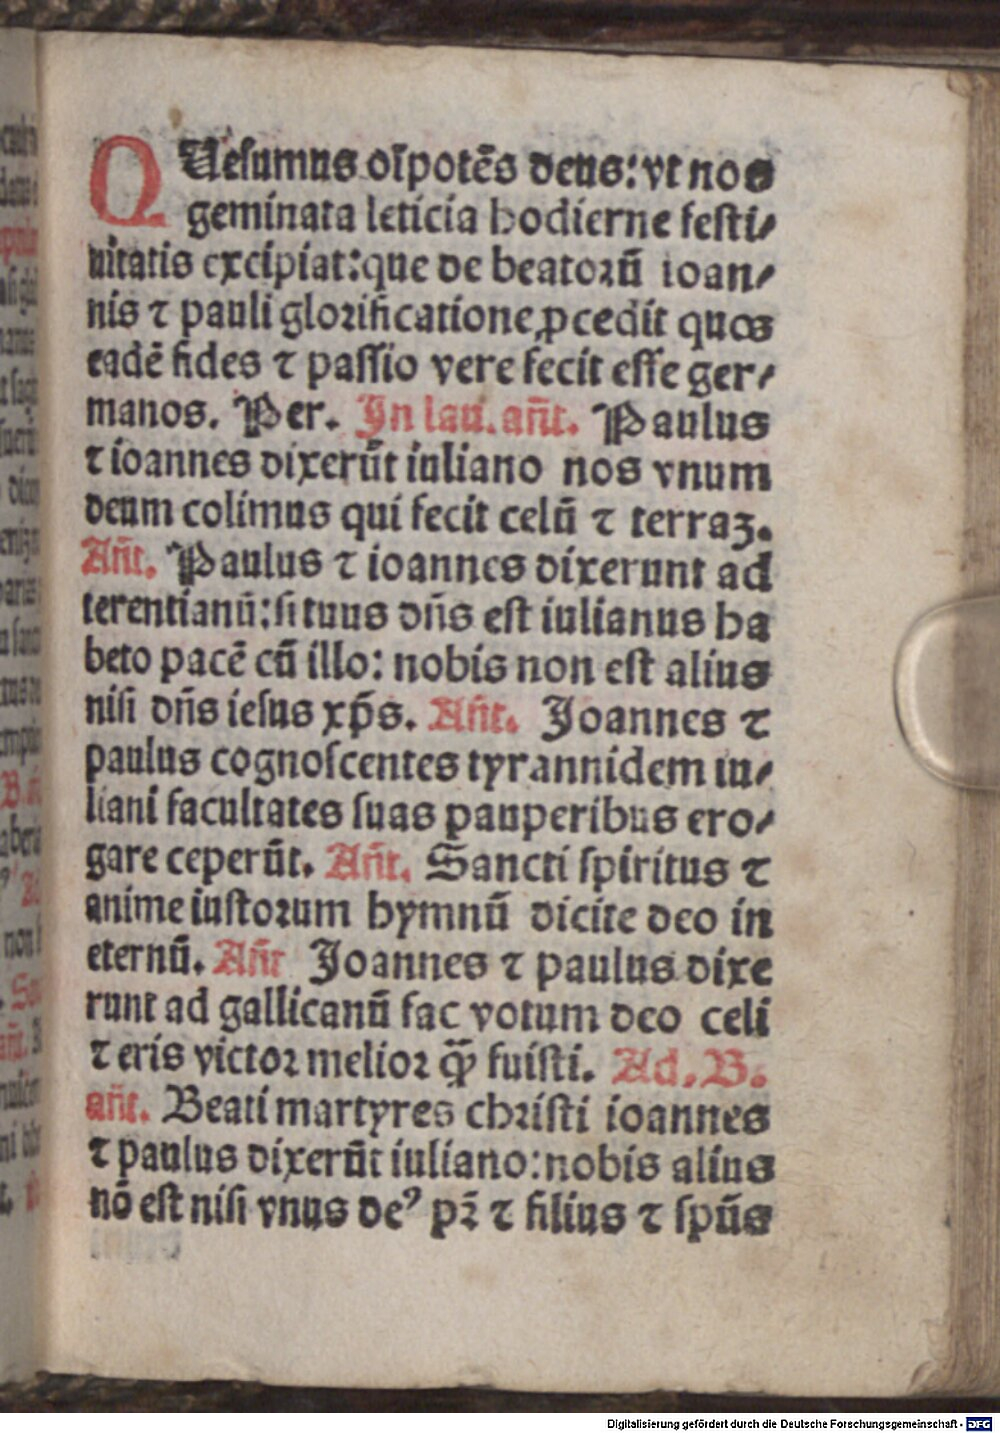 QUesumus oi̅pote̅s deus: vt nos
geminata leticia hodierne festi⸗
uitatis excipiat: que de beatoꝝu̅ ioan⸗
nis ⁊ pauli gloꝛificatione ꝓcedit quos
eade̅ fides ⁊ paſſio vere fecit eſſe ger⸗
manos. Per. In lau. an̅t. Paulus
⁊ ioannes dixeru̅t iuliano nos vnum
deum colimus qui fecit celu̅ ⁊ terraꝫ.
An̅t. Paulus ⁊ ioannes dixerunt ad
terentianu̅: ſi tuus dn̅s eſt iulianus ha
beto pace̅ cu̅ illo: nobis non eſt alius
niſi dn̅s ieſus xp̅s. An̅t. Joannes ⁊
paulus cognoſcentes tyrannidem iu⸗
liani facultates ſuas pauperibus ero⸗
gare ceperu̅t. An̅t. Sancti ſpiritus ⁊
anime iuſtoꝛum hymnu̅ dicite deo in
eternu̅. An̅t Joannes ⁊ paulus dixe
runt ad gallicanu̅ fac votum deo celi
⁊ eris victoꝛ melioꝛ qꝫ̅ fuiſti. Ad. B.
an̅t. Beati martyres chꝛiſti ioannes
⁊ paulus dixeru̅t iuliano: nobis alius
no̅ eſt niſi vnus deꝰ pꝛ̅ ⁊ filius ⁊ ſpu̅s
Digitalisierung gefördert durch die Deutsche Forschungsgemeinschaft - DFG